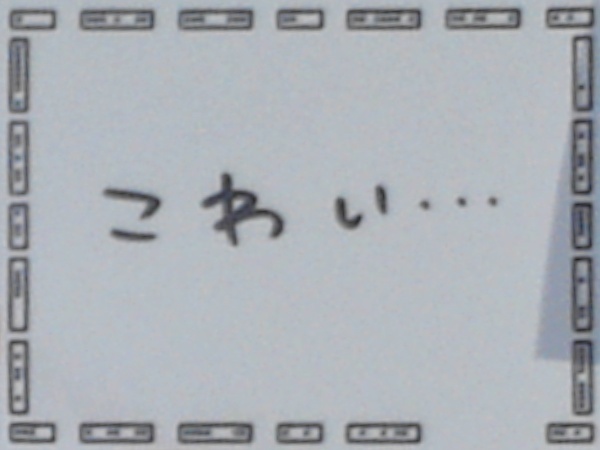 こわい...